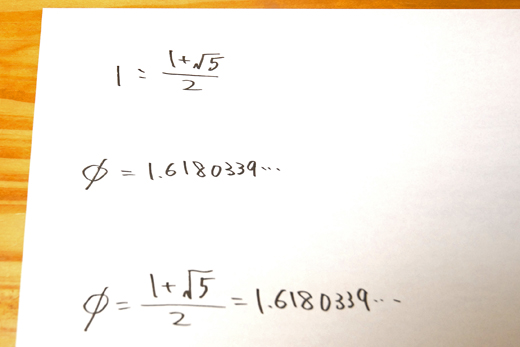 1 = (1+√5)/2
φ = 1.6180339···
φ = (1+√5)/2 = 1.6180339···